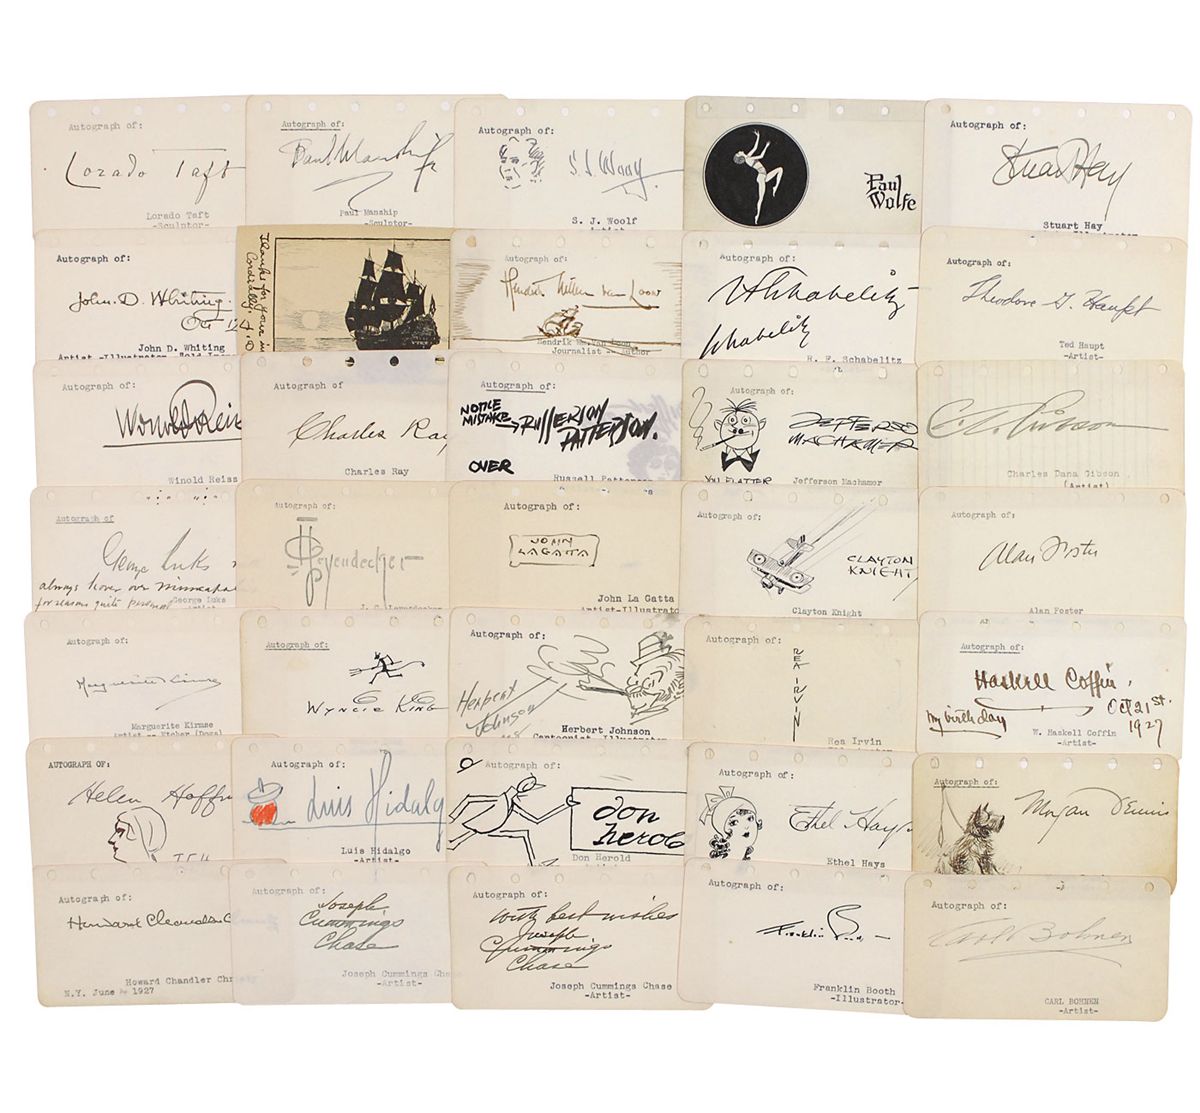 Autograph of:
Lorado Taft
Lorado Taft
-Sculptor-
Autograph of:
Paul Manship
Paul Manship
-Sculptor-
Autograph of:
S. J. Woolf
Paul
Wolfe
Autograph of:
Stuart Hay
Stuart Hay
Autograph of:
John. D. Whiting.
Oct 12
John D. Whiting
Thanks for your in
Cordially,
Autograph of:
Hendrik Willem van Loon
Journalist - Author
Autograph of:
Schabelitz
R. F. Schabelitz
Autograph of:
Theodore G. Haupt
Ted Haupt
-Artist-
Autograph of:
Winold Reiss
Winold Reiss
Autograph of
Charles Ray
Charles Ray
Autograph of:
NOTICE
MISTAKE
RUSSERSON
PATTERSON.
OVER
Russell Patterson
Autograph of:
JEFFERSO
MACHAMER
YOU FLATTER
Jefferson Machamer
C. D. Gibson
Charles Dana Gibson
(Artist)
Autograph of
George Luks
always hover over Minneapol
for reasons quite personal
George Luks
Autograph of:
JCLeyendecker
J. C. Leyendecker
Autograph of:
JOHN
LAGATTA
John La Gatta
Artist-Illustrato
Autograph of:
CLAYTON
KNIGHT
Clayton Knight
Autograph of:
Alan Foster
Alan Foster
Autograph of:
Marguerite Kirmse
Marguerite Kirmse
Artist - Etcher (Dogs)
Autograph of:
WYNCIE KING
Autograph of:
Herbert
Johnson
Herbert Johnson
Cartoonist-Illustrator
Autograph of:
REA IRVIN
Rea Irvin
Autograph of:
Haskell Coffin.
Oct 21st.
my birthday
1927
W. Haskell Coffin
-Artist-
AUTOGRAPH OF:
Helen Hoffm
Autograph of:
Luis Hidalg
Luis Hidalgo
-Artist-
Autograph of:
don
herold
Don Herold
Autograph of:
Ethel Hays
Ethel Hays
Autograph of:
Morgan Dennis
Autograph of:
Howard Chandler C
Howard Chandler Chr
N.Y. June 1927
Autograph of:
Joseph
Cummings
Chase
Joseph Cummings Chase
-Artist-
Autograph of:
With best wishes
Joseph
Cummings
Chase
Joseph Cummings Chase
-Artist-
Autograph of:
Franklin Booth
Franklin Booth
-Illustrator-
Autograph of:
Carl Bohnen
CARL BOHNEN
-Artist-